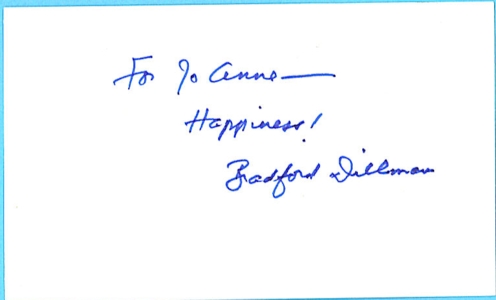 For Jo Anne—
Happiness!
Bradford Dillman